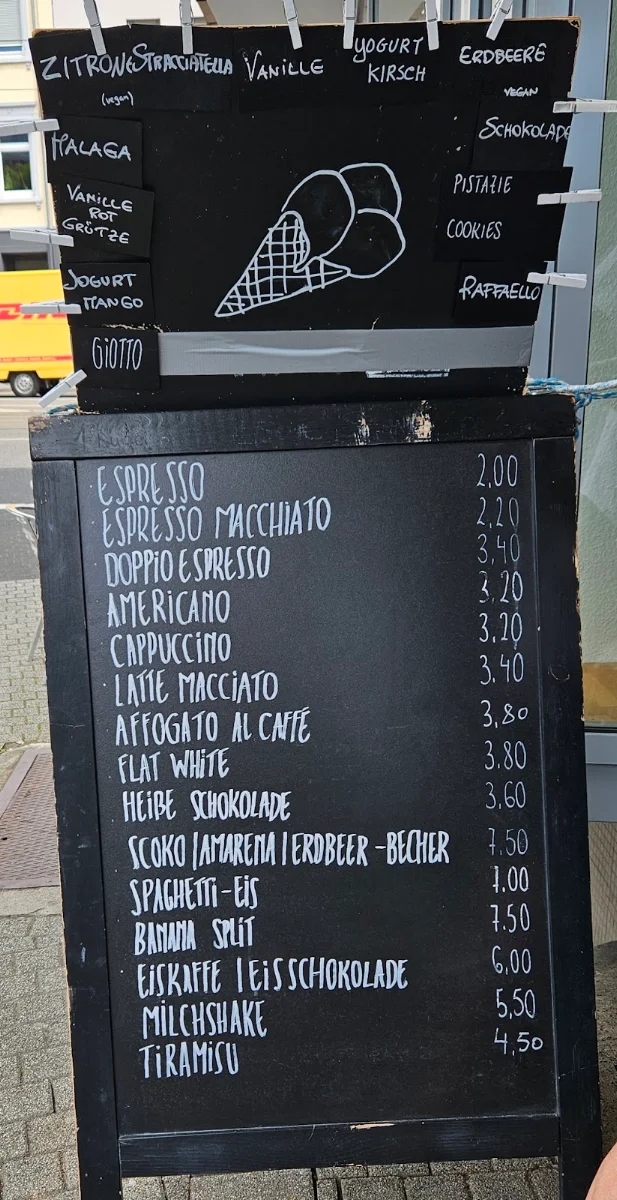 ZITRONE STRACCIATELLA VANILLE YOGURT KIRSCH ERDBEERE
(vegan)
VEGAN
MALAGA
SCHOKOLADE
VANILLE
ROT
GRÜTZE
PISTAZIE
COOKIES
JOGURT
MANGO
RAFFAELLO
GIOTTO
ESPRESSO 2,00
ESPRESSO MACCHIATO 2,20
DOPPIO ESPRESSO 3,40
AMERICANO 3,20
CAPPUCCINO 3,20
LATTE MACCIATO 3,40
AFFOGATO AL CAFFÉ 3,80
FLAT WHITE 3,80
HEIßE SCHOKOLADE 3,60
SCOKO | AMARENA | ERDBEER-BECHER 7,50
SPAGHETTI-EIS 7,00
BANANA SPLIT 7,50
EISKAFFE | EISSCHOKOLADE 6,00
MILCHSHAKE 5,50
TIRAMISU 4,50